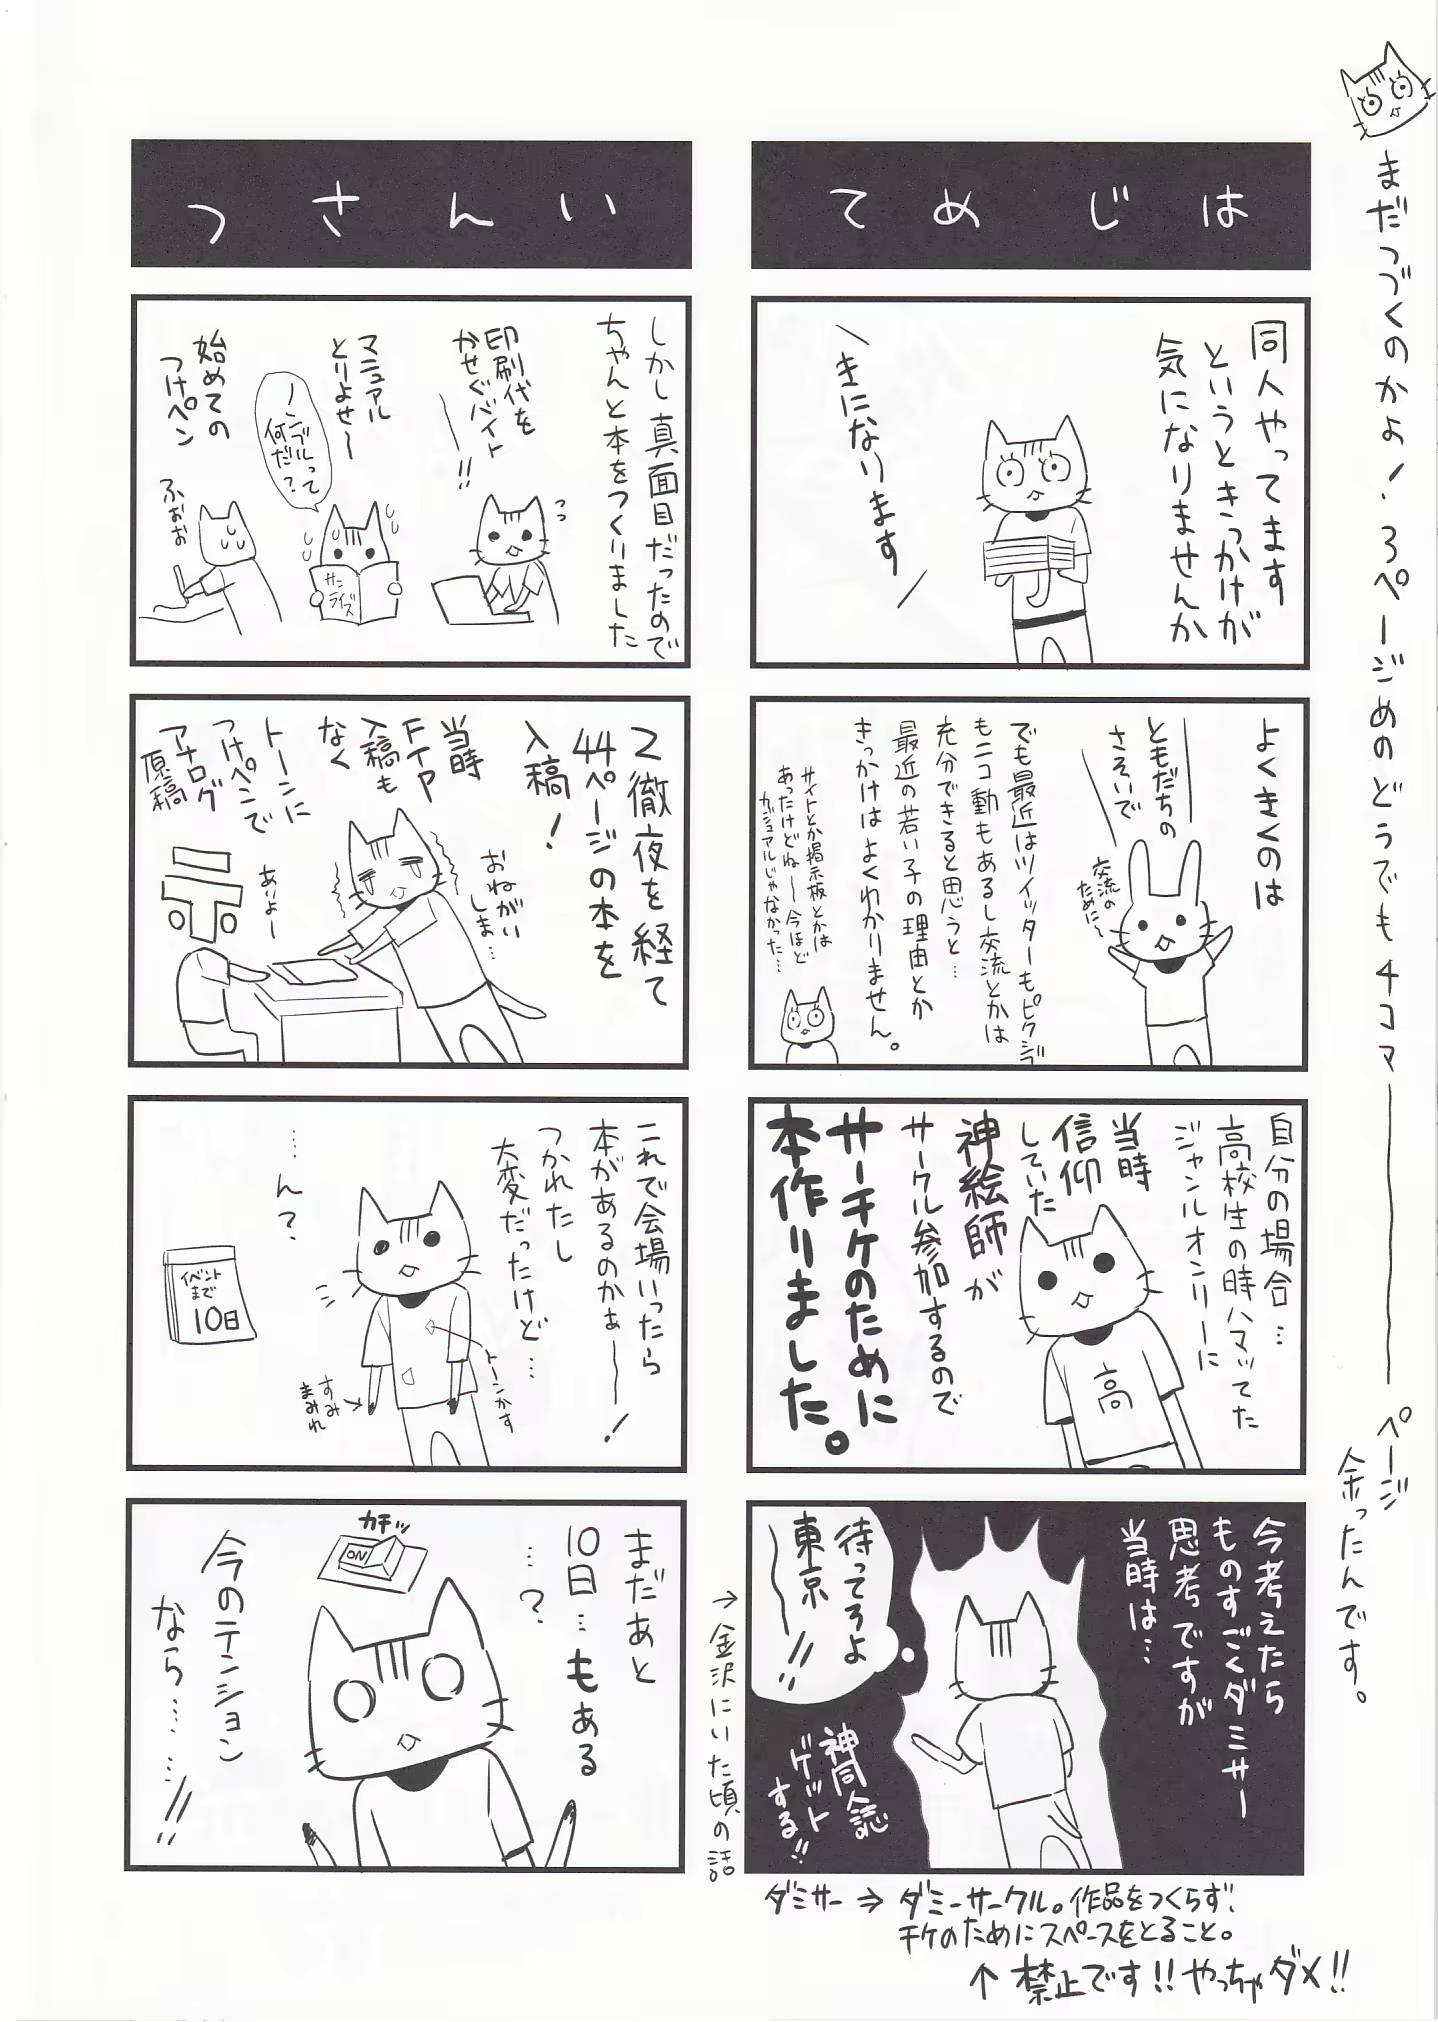 まだつづくのかよ！3ページめのどうでも4コマ
ページ
余ったんです。
はじめて
同人やってます
というときっかけが
気になりませんか
きになります
よくきくのは
ともだちの
さそいで
交流の
ために〜
でも最近はツイッターもピクシブ
もニコ動もあるし交流とかは
充分できると思うと…
最近の若い子の理由とか
きっかけはよくわかりません。
サイトとか掲示板とかは
あったけどね――今ほど
カジュアルじゃなかった…
自分の場合…
高校生の時ハマッてた
ジャンルオンリーに
当時
信仰
していた
神絵師が
サークル参加するので
サーチケのために
本作りました。
高
今考えたら
ものすごくダミサー
思考ですが
当時は…
待ってろよ
東京――!!
神同人誌
ゲット
する!!
→金沢にいた頃の話
ダミサー⇒ダミーサークル。作品をつくらず
チケのためにスペースをとること。
↑禁止です!!やっちゃダメ!!
いんさつ
しかし真面目だったので
ちゃんと本をつくりました
印刷代を
かせぐバイト
!!
マニュアル
とりよせ〜
ノンブルって
何だ？
サン
ライズ
始めての
つけペン
ふぉぉ
2徹夜を経て
44ページの本を
入稿！
当時
FTP
入稿も
なく
トーンに
つけペンで
アナログ
原稿
おねがい
しま…
あいよー
これで会場いったら
本があるのかぁ――！
つかれたし
大変だったけど…
…ん？
イベント
まで
10日
トーンかす
すみ
まみれ
まだあと
10日…もある
…？
カチッ
ON
今のテンション
なら……!!